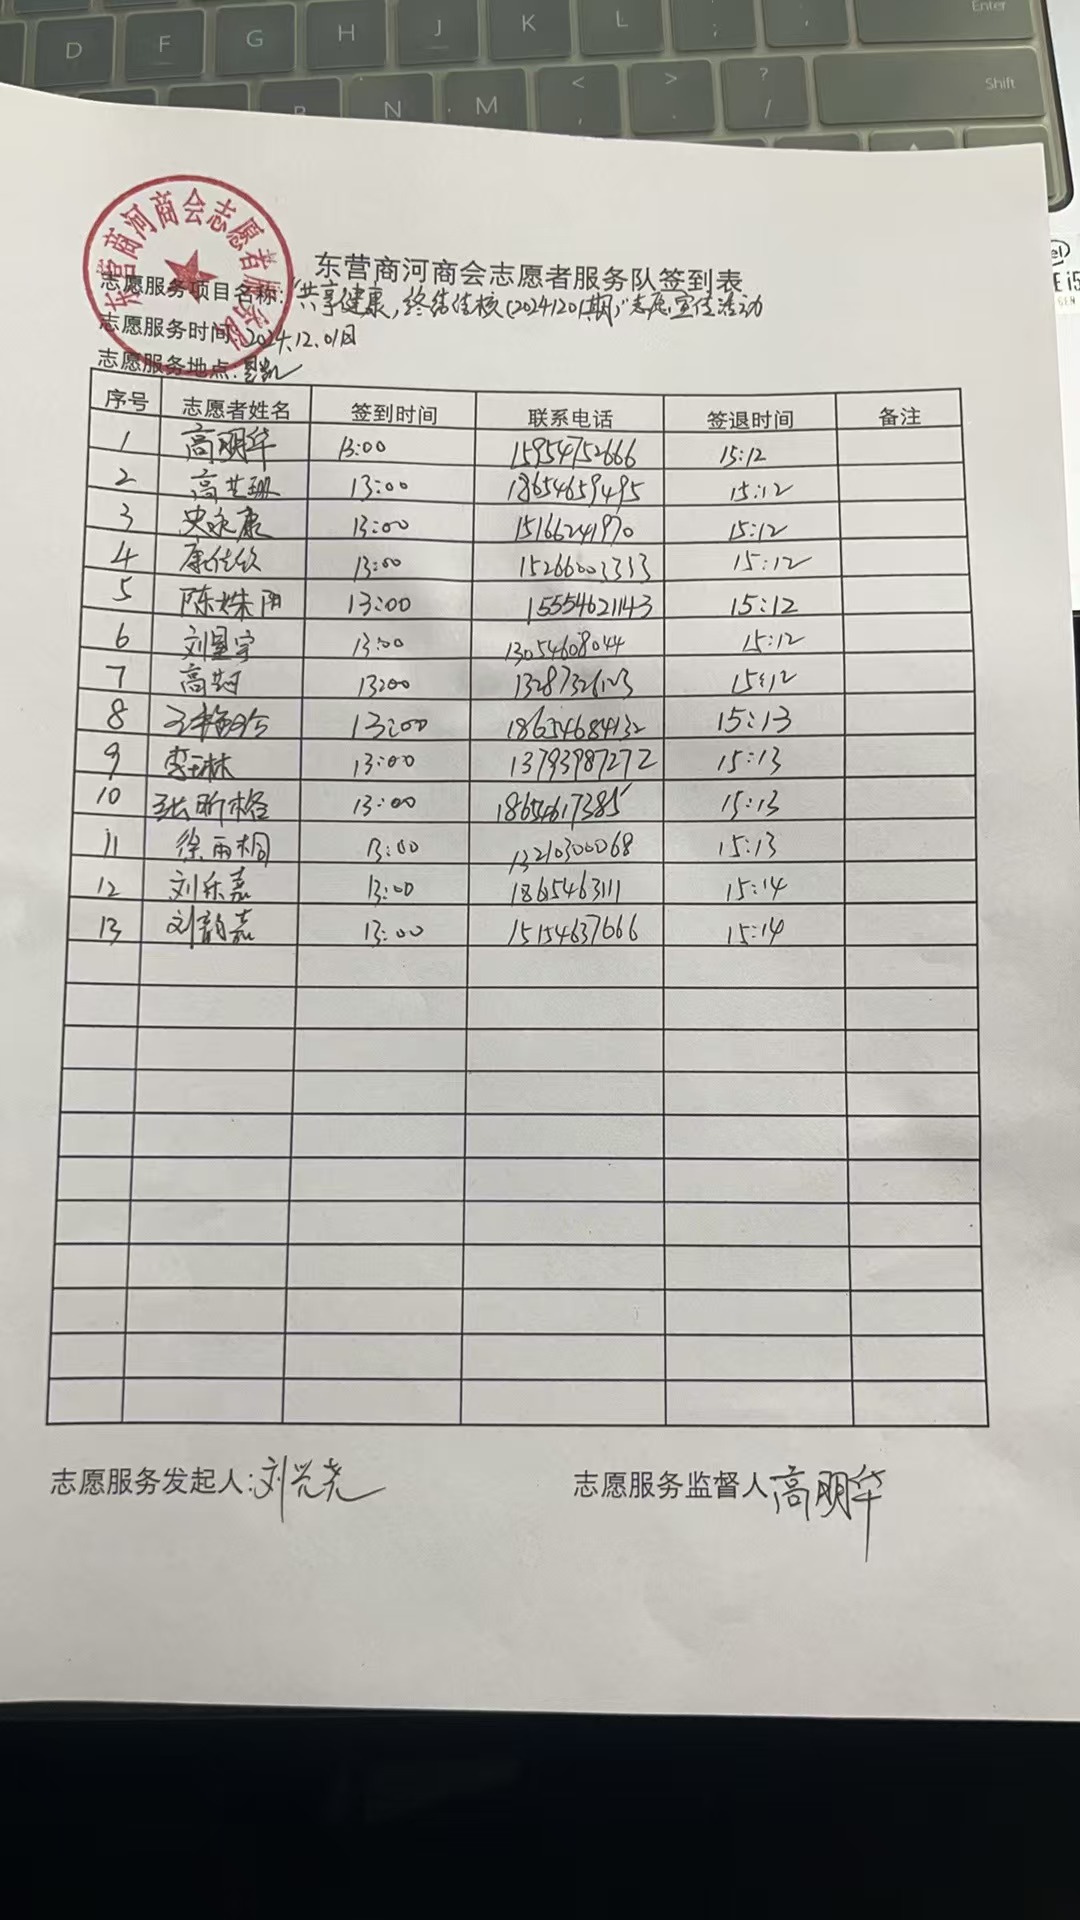 D F G H J K L ; ' Enter
B N M < , > . ? / Shift
i5
东营商河商会志愿者服务队
东营商河商会志愿者服务队签到表
志愿服务项目名称:“共享健康,终结结核(20241201期)”志愿宣传活动
志愿服务时间:2024.12.01日
志愿服务地点:
序号 志愿者姓名 签到时间 联系电话 签退时间 备注
1 高明华 13:00 15954752666 15:12
2 高艺珊 13:00 18654659495 15:12
3 史永康 13:00 15166241970 15:12
4 康佳欣 13:00 15266003333 15:12
5 陈姝阴 13:00 15554621143 15:12
6 刘星宇 13:00 13054608044 15:12
7 13:00 13287326123 15:12
8 13:00 18654684132 15:13
9 李玉琳 13:00 13793987272 15:13
10 张昕格 13:00 18654617385 15:13
11 徐雨桐 13:00 13210300068 15:13
12 刘乐嘉 13:00 15:14
13 刘韵嘉 13:00 15154637666 15:14
志愿服务发起人:刘兴尧 志愿服务监督人高明华